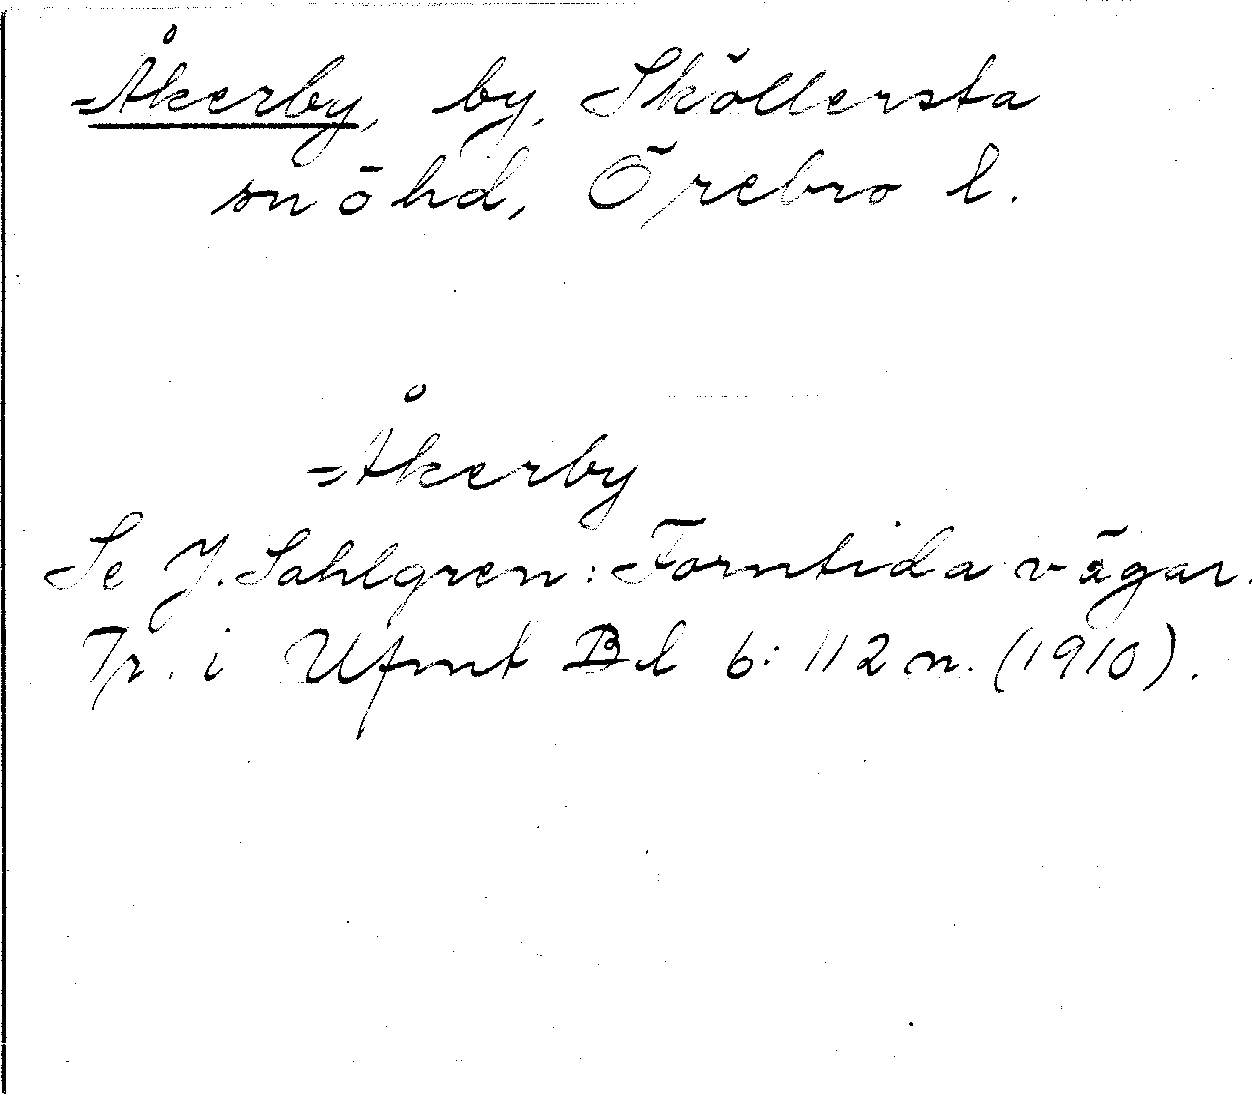 Åkerby, by, Sköllersta
sn ö hd, Örebro l.
Åkerby
Se J. Sahlgren: Forntida vägar.
Tr. i Ufmt Bd 6: 112 n. (1910).